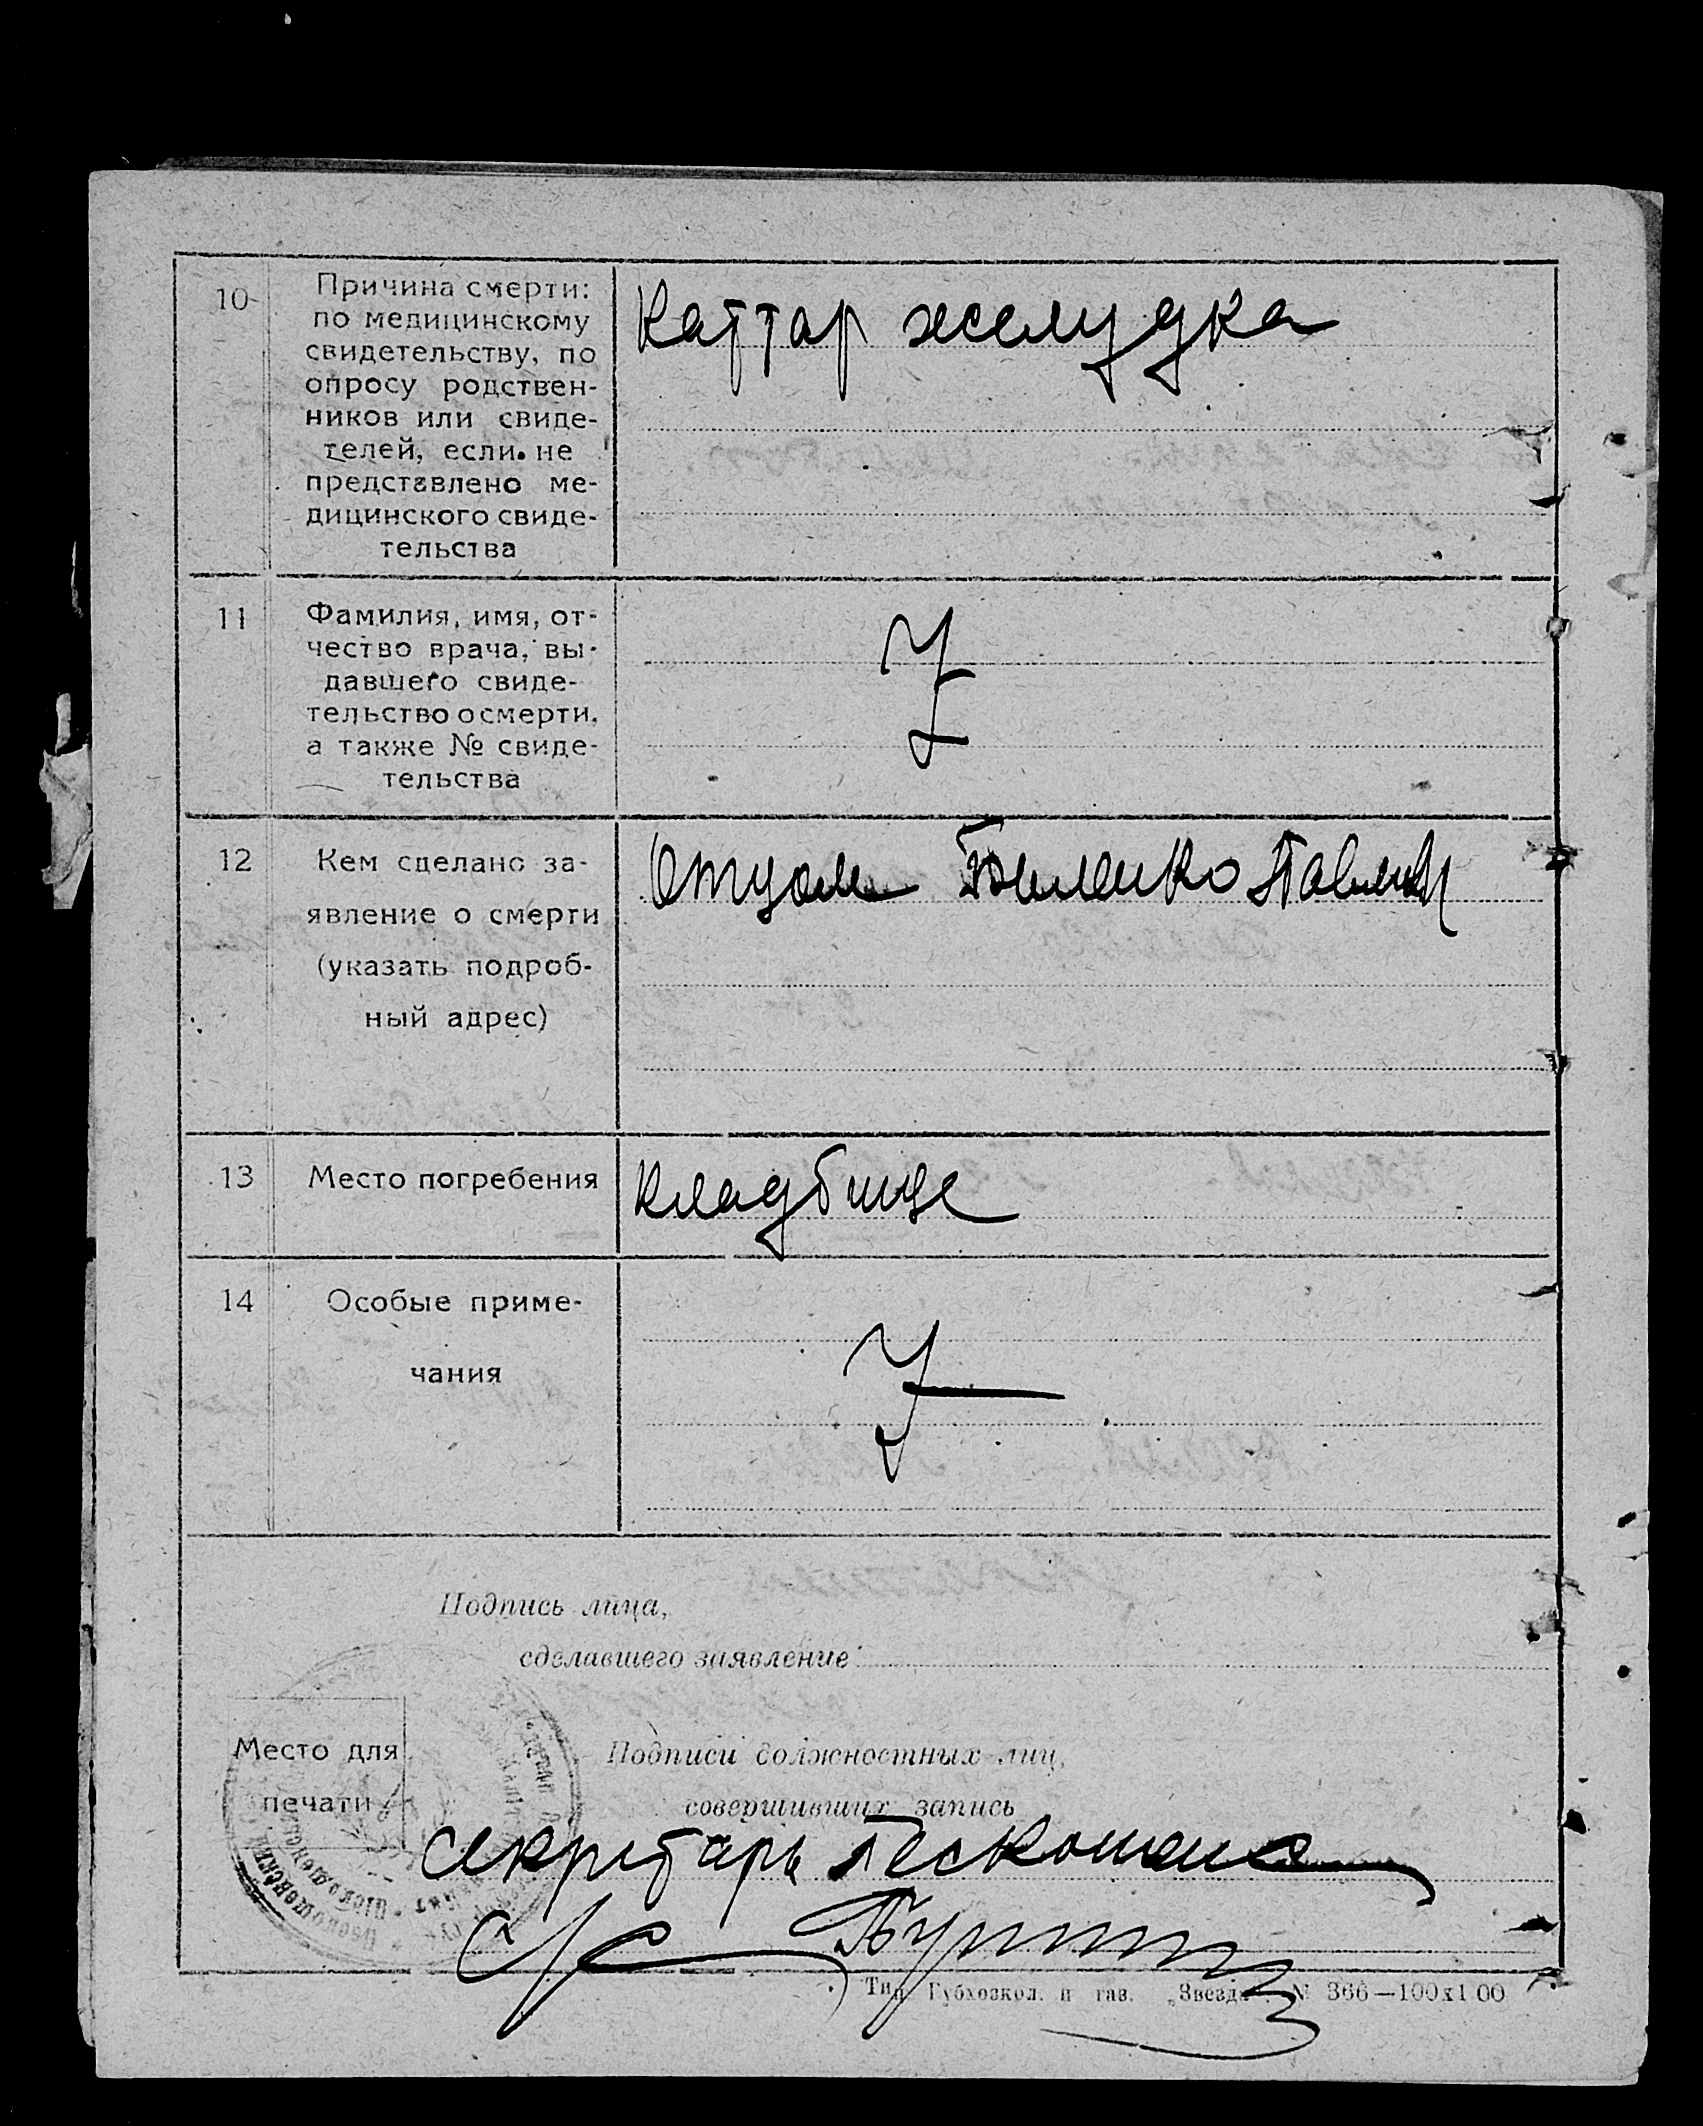 10
Причина смерти:
по медицинскому
свидетельству, по
опросу родствен-
ников или свиде-
телей, если не
представлено ме-
дицинского свиде-
тельства
Каттар желудка
11
Фамилия, имя, от-
чество врача, вы-
давшего свиде-
тельство о смерти,
а также № свиде-
тельства
12
Кем сделано за-
явление о смерти
(указать подроб-
ный адрес)
Отцом Биленко
13
Место погребения
Кладбище
14
Особые приме-
чания
Подпись лица,
сделавшего заявление
Место для
печати
Подписи должностных лиц,
совершивших запись
Секретарь
Тип. Губхозкол. и газ. „Звезда". № 366—100х1 00